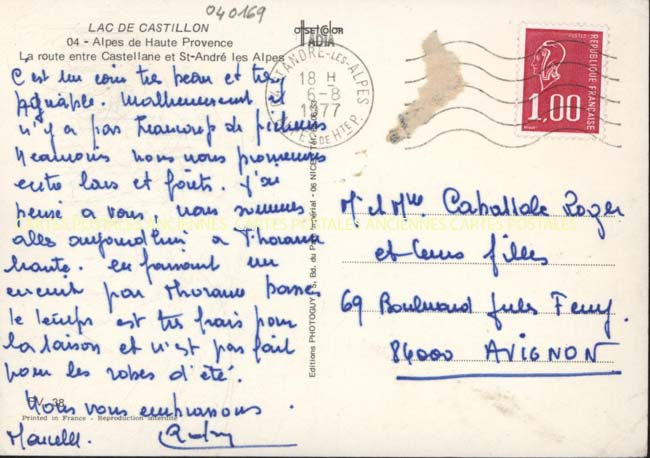 040169
LAC DE CASTILLON
04 - Alpes de Haute Provence
La route entre Castellane et St-André les Alpes
C'est un coin très beau et très
agréable. Malheureusement il
n'y a pas beaucoup de
Néanmoins nous nous promenons
entre lacs et forêts. J'ai
pensé a vous, nous sommes
allés aujourd'hui a Thorame
haute. en passant
par Thorame basse
le temps est très frais pour
la saison et n'est pas fait
pour les robes d'été.
Nous vous embrassons.
Marcelle.
38
Printed in France - Reproduction interdite
Editions PHOTOGUY
06 NICE
OFFSET COLOR
ST ANDRE-LES-ALPES
18 H
6-8
1977
POSTES
REPUBLIQUE FRANÇAISE
1,00
CARTES POSTALES ANCIENNES CARTES POSTALES
Mr et Mme Roger
et leurs filles
69 Boulevard Jules Ferry.
84000 AVIGNON